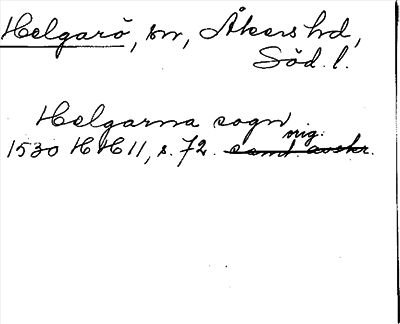 Helgarö, sn, Åkers hd,
Söd. l.
Helgarna sogn
orig.
1530 HH 11, s. 72. samt. avskr.